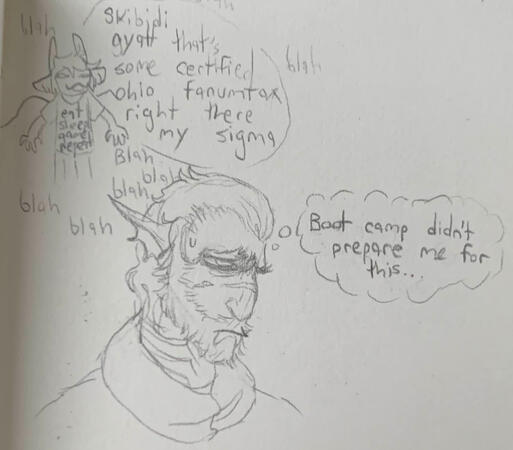 blah
skibidi
gyatt that's
some certified
ohio fanumtax
right there
my sigma
blah
eat
sleep
game
repeat
Blah
blah
blah
blah
blah
Boot camp didn't
prepare me for
this...